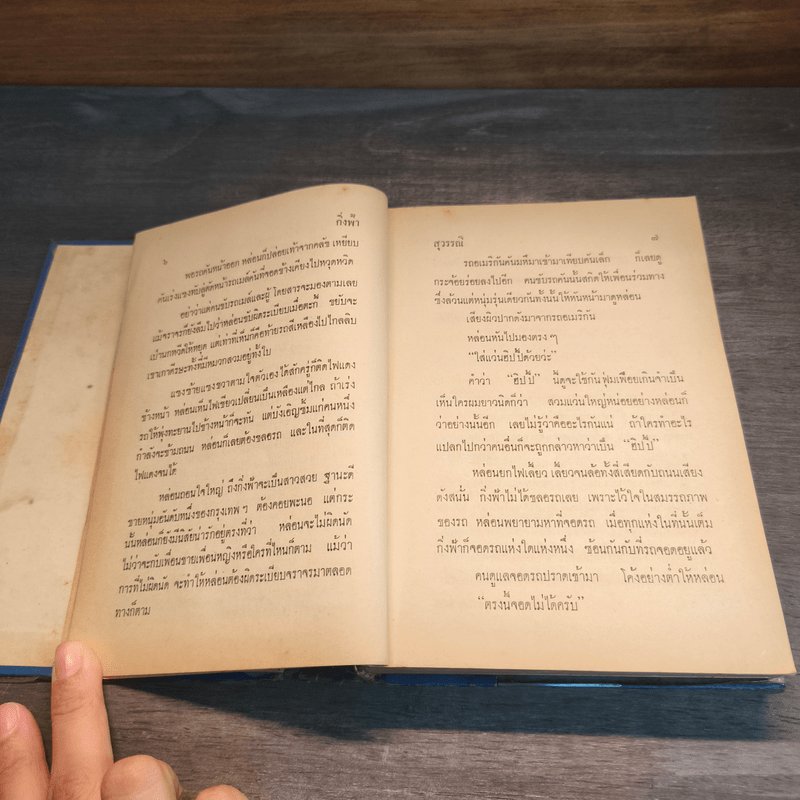 ๖
กิ่งฟ้า
พอรถคันหน้าออก หล่อนก็ปล่อยเท้าจากคลัช เหยียบ
คันเร่งแซงหมู่สู่คิดหน้ารถเมล์คันที่จอดข้างเคียงไปหวุดหวิด
อย่าว่าแต่คนขับรถเมล์และผู้โดยสารจะมองตามเลย
แม้จราจรก็ยังลืมไปว่าหล่อนขับผิดระเบียบเมื่อตะกี้ ขยับจะ
เป่านกหวีดให้หยุด แต่เท่าที่เห็นก็คือท้ายรถสีเหลืองไปไกลลิบ
เขาเกาศีรษะทั้งที่มีหมวกสวมอยู่ทั้งใบ
แซงซ้ายแซงขวาตามใจตัวเองได้สักครู่ก็ติดไฟแดง
ข้างหน้า หล่อนเห็นไฟเขียวเปลี่ยนเป็นเหลืองแต่ไกล ถ้าเร่ง
รถให้พุ่งทะยานไปข้างหน้าก็จะทัน แต่บังเอิญซิ่มแก่คนหนึ่ง
กำลังจะข้ามถนน หล่อนก็เลยต้องชลอรถ และในที่สุดก็ติด
ไฟแดงจนได้
หล่อนถอนใจใหญ่ ถึงกิ่งฟ้าจะเป็นสาวสวย ฐานะดี
ชายหนุ่มอันดับหนึ่งของกรุงเทพ ๆ ต้องคอยพะนอ แต่กระ
นั้นหล่อนก็ยังมีนิสัยน่ารักอยู่ตรงที่ว่า หล่อนจะไม่ผิดนัด
ไม่ว่าจะกับเพื่อนชายเพื่อนหญิงหรือใครที่ไหนก็ตาม แม้ว่า
การที่ไม่ผิดนัด จะทำให้หล่อนต้องผิดระเบียบจราจรมาตลอด
ทางก็ตาม
สุวรรณี
๗
รถอเมริกันคันมหึมาเข้ามาเทียบคันเล็ก ก็เลยดู
กระจ้อยร่อยลงไปอีก คนขับรถคันนั้นสกิดให้เพื่อนร่วมทาง
ซึ่งล้วนแต่หนุ่มรุ่นเดียวกันทั้งนั้นให้หันหน้ามาดูหล่อน
เสียงผิวปากดังมาจากรถอเมริกัน
หล่อนหันไปมองตรง ๆ
“ใส่แว่นฮิปปี้ด้วยว่ะ”
คำว่า “ฮิปปี้” นี้ดูจะใช้กันฟุ่มเฟือยเกินจำเป็น
เห็นใครผมยาวนิดก็ว่า สวมแว่นใหญ่หน่อยอย่างหล่อนก็
ว่าอย่างนั้นอีก เลยไม่รู้ว่าคืออะไรกันแน่ ถ้าใครทำอะไร
แปลกไปกว่าคนอื่นก็จะถูกกล่าวหาว่าเป็น “ฮิปปี้”
หล่อนยกไฟเลี้ยว เลี้ยวจนล้อทั้งสี่เสียดกับถนนเสียง
ดังสนั่น กิ่งฟ้าไม่ได้ชลอรถเลย เพราะไว้ใจในสมรรถภาพ
ของรถ หล่อนพยายามหาที่จอดรถ เมื่อทุกแห่งในที่นั้นเต็ม
กิ่งฟ้าก็จอดรถแห่งใดแห่งหนึ่ง ซ้อนกันกับที่รถจอดอยู่แล้ว
คนดูแลจอดรถปราดเข้ามา โค้งอย่างต่ำให้หล่อน
“ตรงนี้จอดไม่ได้ครับ”